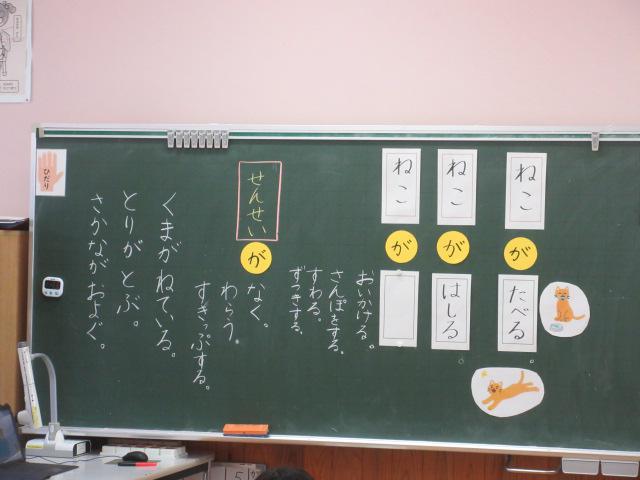 ねこ
が
たべる
。
ねこ
が
はしる
。
ねこ
が
おいかける。
さんぽをする。
すわる。
ずつきする。
せんせい
が
なく。
わらう。
すきっぷする。
くまがねている。
とりがとぶ。
さかながおよぐ。
ひだり